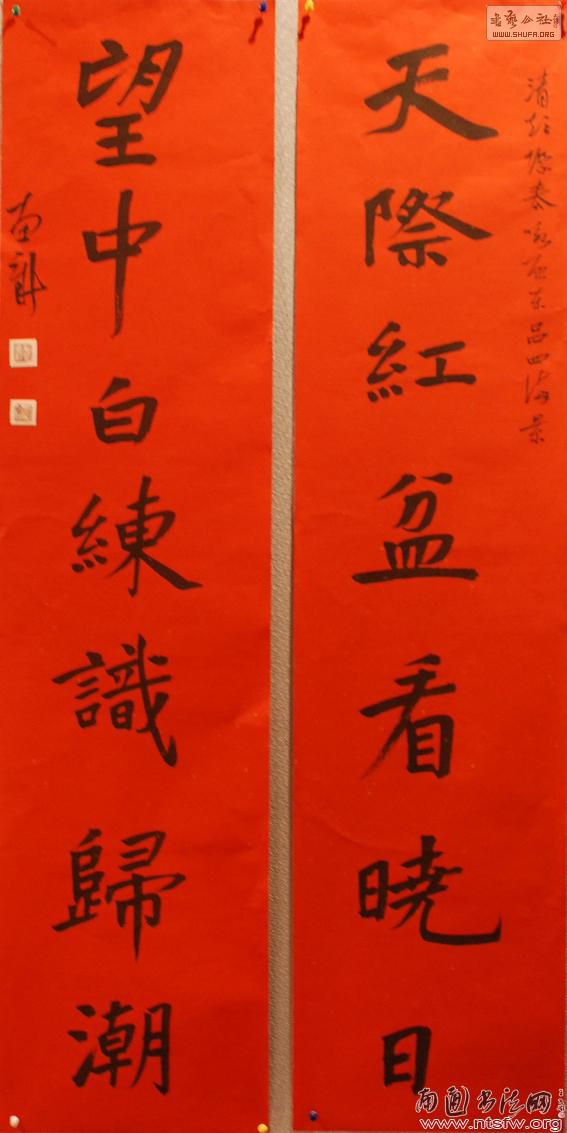 天際紅盆看曉日
望中白練識歸潮
書藝公社
WWW.SHUFA.ORG
南通书法网
www.ntsfw.org